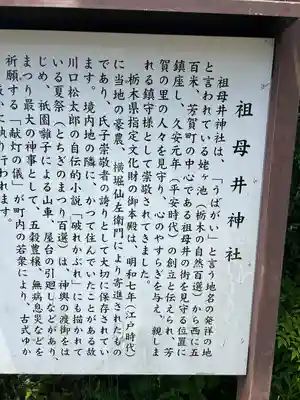 祖母井神社
祖母井神社は、「うばがい」と言う地名の発祥の地
と言われている姥ヶ池（栃木の自然百選）から西に五
百米、芳賀町の中心である祖母井の街を見守る位置に
鎮座し、久安元年（平安時代）の創立と伝えられ、芳
賀の里の人々を見守り、心のやすらぎを与え、親しま
れる鎮守様として崇敬されてきました。
栃木県指定文化財の御本殿は、明和七年（江戸時代）
に当地の豪農、横堀仙左衛門により寄進されたもの
であり、氏子崇敬者の誇りとして大切に保存されてい
ます。境内地の隣に、かつて住んでいたことがある故
川口松太郎の自伝的小説「破れかぶれ」にも描かれて
いる夏祭（とちぎのまつり百選）は、神輿の渡御をは
じめ、祇園囃子による山車、屋台の引廻しなどがあり、
まつり最大の神事として、五穀豊穣、無病息災などを
祈願する「献灯の儀」が町内の若衆により、古式ゆか
に執り行われます。